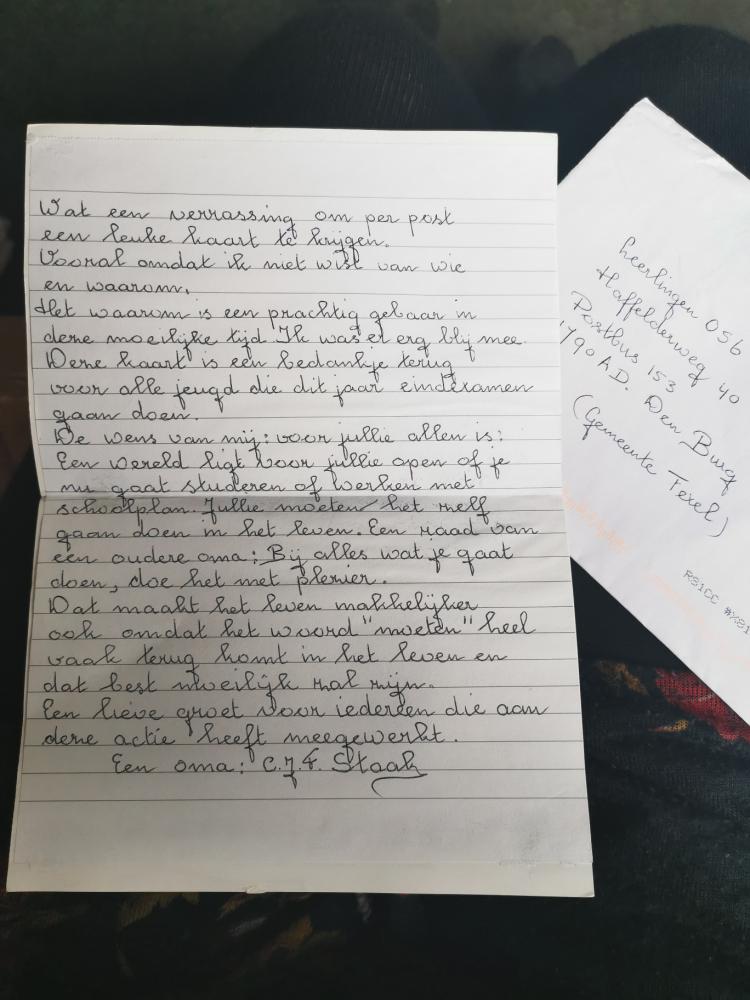 Wat een verrassing om per post
een leuke kaart te krijgen.
Vooral omdat ik niet wist van wie
en waarom.
Het waarom is een prachtig gebaar in
deze moeilijke tijd. Ik was er erg blij mee.
Deze kaart is een bedankje terug
voor alle jeugd die dit jaar eindexamen
gaan doen.
De wens van mij: voor jullie allen is:
Een wereld ligt voor jullie open of je
nu gaat studeren of werken met
schoolplan. Jullie moeten het zelf
gaan doen in het leven. Een raad van
een oudere oma: Bij alles wat je gaat
doen, doe het met plezier.
Dat maakt het leven makkelijker
ook omdat het woord "moeten" heel
vaak terug komt in het leven en
dat best moeilijk zal zijn.
Een lieve groet voor iedereen die aan
deze actie heeft meegewerkt.
Een oma: C.J.F. Staak
Leerlingen OSG
Haffelderweg 40
Postbus 153
1790 AD. Den Burg
(Gemeente Texel)